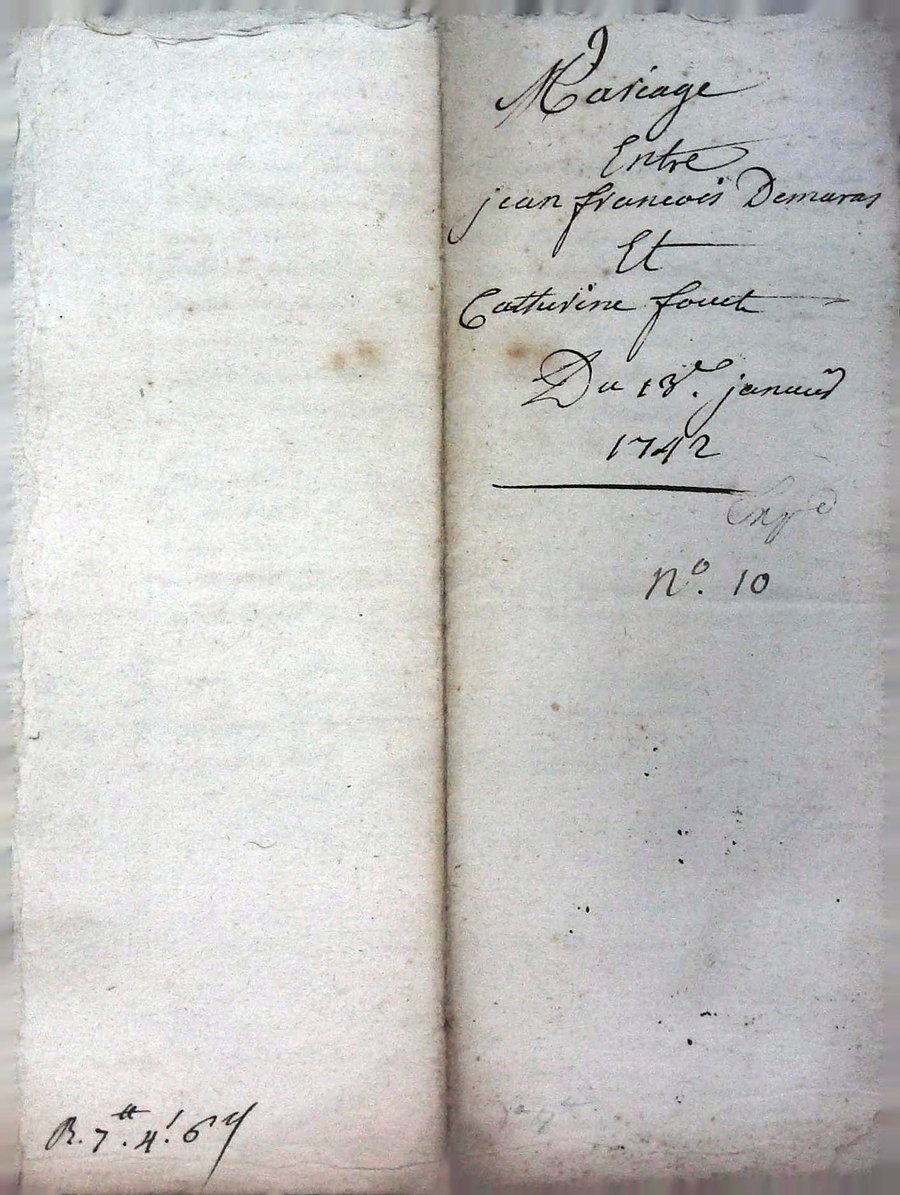 Mariage
Entre
jean francois Demaras
Et
Catherine fouet
Du 13e. janvier
1742
Expé
no. 10
R. 7tt. 4s. 6d